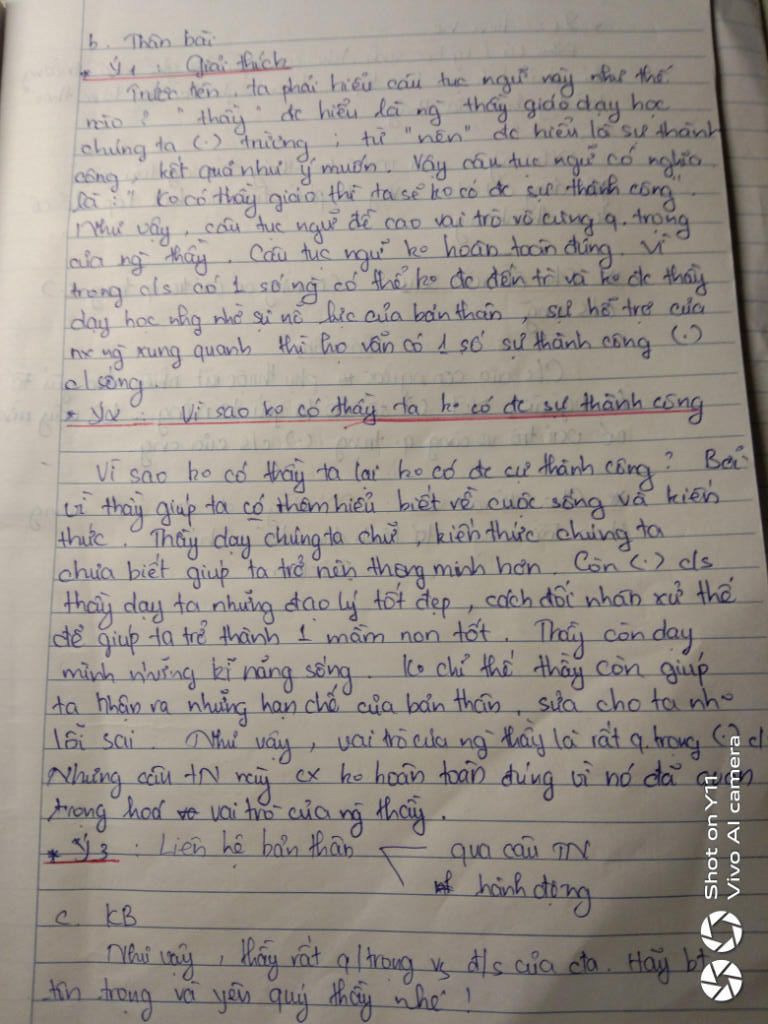 b. Thân bài
* Ý1 : Giải thích
Trước tên, ta phải hiểu câu tục ngữ này như thế
nào ? "thầy" đc hiểu là ng thầy giáo dạy học
chúng ta (.) trường ; từ "nên" đc hiểu là sự thành
công, kết quả như ý muốn. Vậy câu tục ngữ có nghĩa
là : " Ko có thầy giáo thì ta sẽ ko có đc sự thành công".
Như vậy, câu tục ngữ đề cao vai trò vô cùng q. trọng
của ng thầy. Câu tục ngữ ko hoàn toàn đúng. Vì
trong c/s có 1 số ng có thể ko đc đến tr và ko đc thầy
dạy học nhg nhờ sự nỗ lực của bản thân, sự hỗ trợ của
nx ng xung quanh thì họ vẫn có 1 số sự thành công (.)
c/sống.
* Ý2 : Vì sao ko có thầy ta ko có đc sự thành công
Vì sao ko có thầy ta lại ko có đc sự thành công ? Bởi
vì thầy giúp ta có thêm hiểu biết về cuộc sống và kiến
thức. Thầy dạy chúng ta chữ, kiến thức chúng ta
chưa biết giúp ta trở nên thông minh hơn. Còn (.) c/s
thầy dạy ta những đạo lý tốt đẹp, cách đối nhân xử thế
để giúp ta trở thành 1 mầm non tốt. Thầy còn dạy
mình những kĩ năng sống. Ko chỉ thế thầy còn giúp
ta nhận ra những hạn chế của bản thân, sửa cho ta nh
lỗi sai. Như vậy, vai trò của ng thầy là rất q. trọng (.) c/
Nhưng câu TN này cx ko hoàn toàn đúng vì nó đã quan
trọng hoá vai trò của ng thầy.
* Ý3 : Liên hệ bản thân qua câu TN
hành động
c. KB
Như vậy, thầy rất q/trọng vs đ/s của cta. Hãy bt
tôn trọng và yên quý thầy nhé !
Shot on Y11
Vivo AI camera